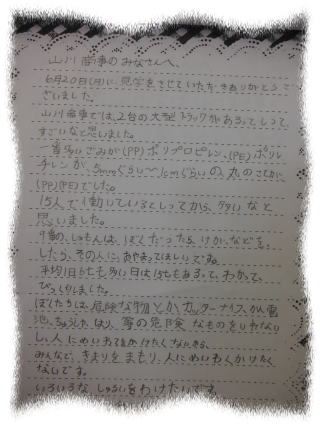 山川商事のみなさんへ、
6月20日(月)に、見学をさせていただきありがとうご
ざいました。
山川商事では、2台の大型トラックがあるってしって、
すごいなと思いました。
一番多いごみが(PP)ポリプロピレン、(PE)ポリエ
チレンが、5mmぐらい〜1cmぐらいの、丸の
(PP)(PE)でした。
15人で働いているとしってから、少ないなと
思いました。
9番の、しつもんは、ぼくだったら、けがなどを
したら、その人に、あやまってほしいですね。
平均1日6七も多い日は15七もあるって、わかって、
びっくりしました。
ぼくたちは、危険な物とか、カッターナイフ、かん電
池、ちゅうしゃはり、等の危険なものをいれない
し、人にめいわくをかけたくないから、
みんなで、きまりをまもり、人にめいわくかけたく
ないです。
いろいろなしゅるいをわけたいです。